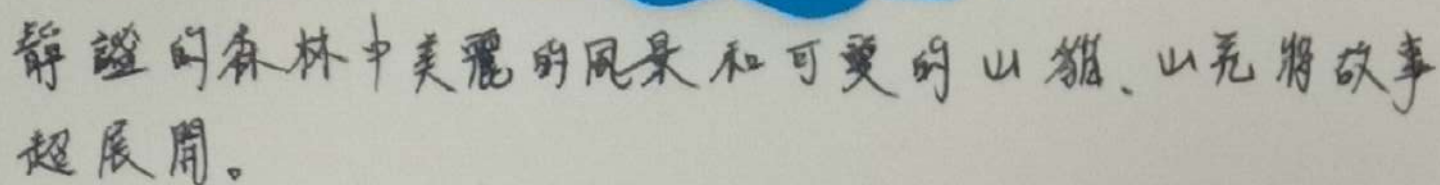 靜謐的森林中美麗的風景和可愛的山豬、山羌將故事
超展開。